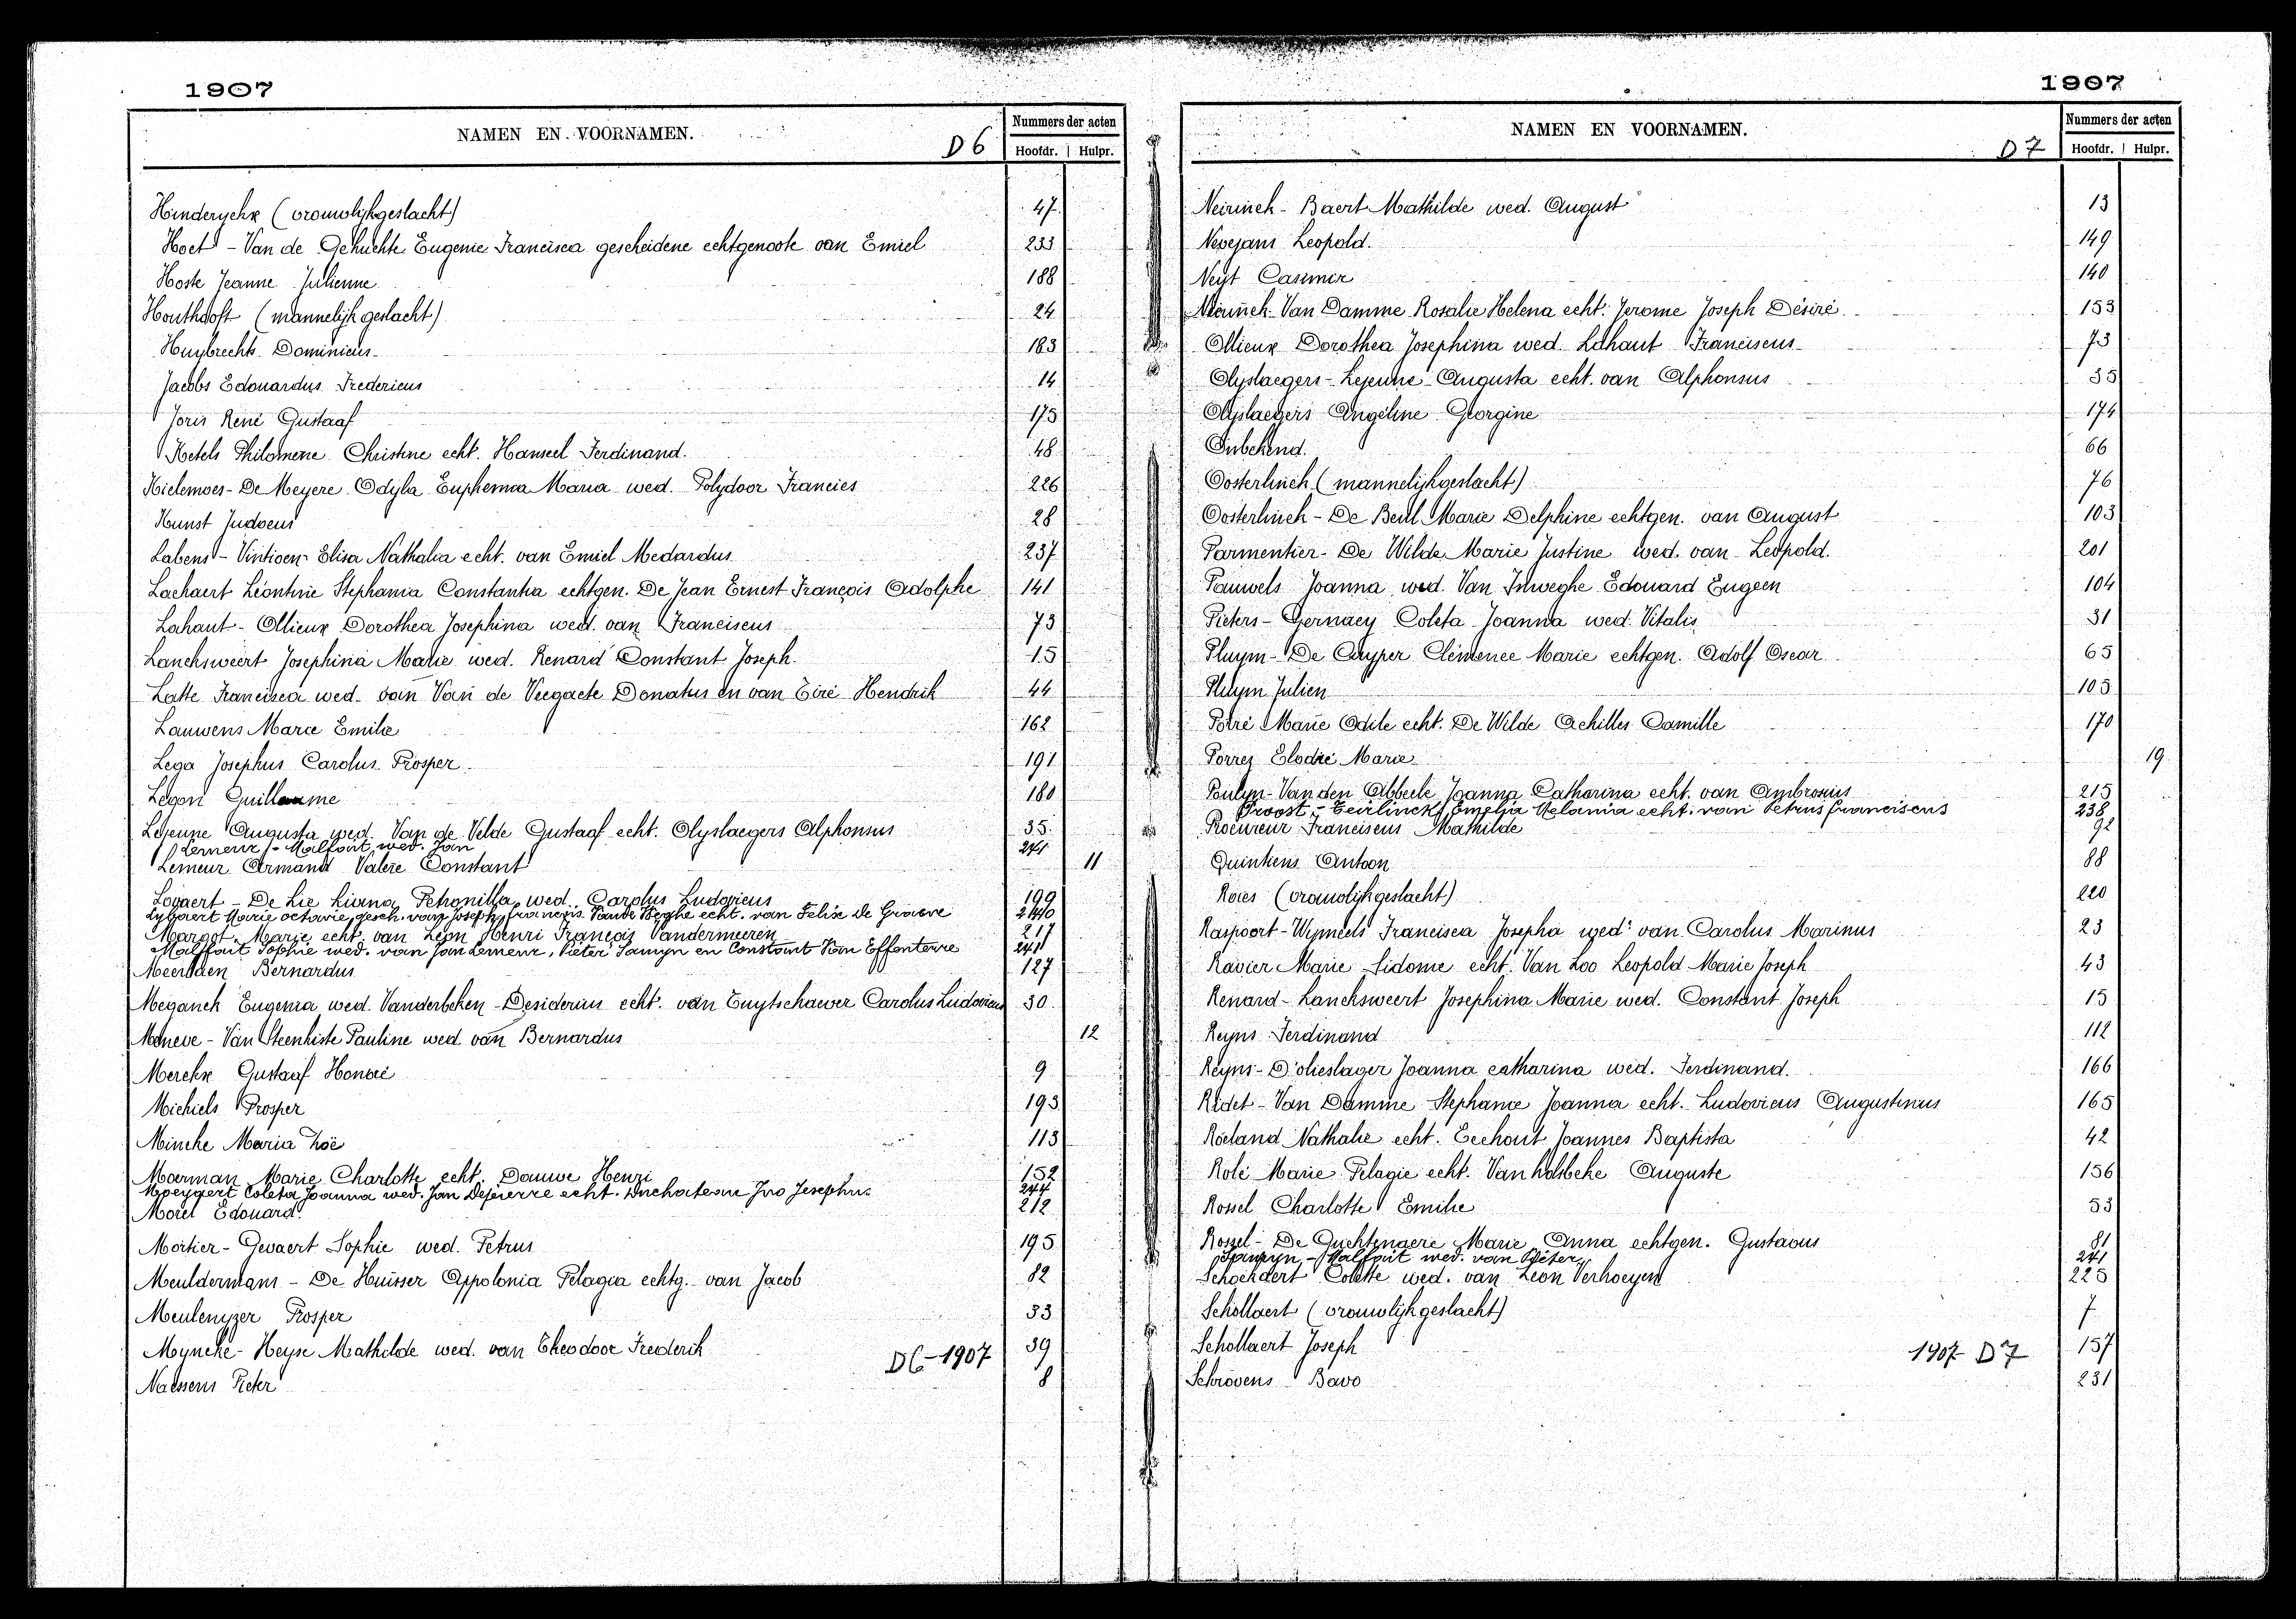 1907
NAMEN EN VOORNAMEN. D6 Nummers der acten
Hoofdr. Hulpr.
Hinderyckx (vrouwlijkgeslacht) 47
Hoet - Van de Gehuchte Eugenie Francisca gescheidene echtgenoote van Emiel 233
Hoste Jeanne Julienne 188
Houthooft (mannelijk geslacht) 24
Huybrechts Dominicus 183
Jacobs Edouardus Fredericus 14
Joris René Gustaaf 175
Ketels Philomene Christine echt. Hanseel Ferdinand. 48
Kielemoes - De Meyere Odyla Euphemia Maria wed. Polydoor Francies 226
Kunst Judocus 28
Labens - Vintioen Elisa Nathalia echt. van Emiel Medardus 237
Lachaert Léontine Stephania Constantia echtgen. De Jean Ernest François Adolphe 141
Lahaut - Ollieux Dorothea Josephina wed. van Franciscus 73
Lancksweert Josephina Marie wed. Renard Constant Joseph. 15
Latte Francisca wed. van Van de Veegaete Donatus en van Eiré Hendrik 44
Lauwens Marie Emilie 162
Lega Josephus Carolus Prosper 191
Legon Guillaume 180
Lejeune Augusta wed. Van de Velde Gustaaf echt. Olyslaegers Alphonsus 35
Lemeur - Malfait wed. Jan 241
Lemeur Armand Valere Constant 11
Lovaert - De Lie Livina Petronilla wed. Carolus Ludovicus 199
Lybaert Marie octavie gesch. van Joseph francois Vande Weghe echt. van Felix De Graeve 240
Margot Marie echt. van Leon Henri François Vandermeeren 217
Malffait Sophie wed. van Jan Lemeur, Pieter Samyn en Constant Van Effenterre 241
Meerlaen Bernardus 127
Meganck Eugenia wed. Vanderbeken - Desiderius echt. van Tuytschaever Carolus Ludovicus 30
Meneve - Van Steenkiste Pauline wed van Bernardus 12
Merckx Gustaaf Honoré 9
Michiels Prosper 193
Mincke Maria Zoë 113
Moerman Marie Charlotte echt. Dauwe Henri 152
Moeyaert Coleta Joanna wed. Jan Depierre echt. Duchateau Ivo Josephus 244
Morel Edouard 212
Mortier - Gevaert Sophie wed. Petrus 195
Meuldermans - De Huisser Appolonia Pelagia echtg. van Jacob 82
Meulenyzer Prosper 33
Myncke - Heyse Mathilde wed. van Theodoor Frederik 39
D6-1907
Naessens Pieter 8
1907
NAMEN EN VOORNAMEN. D7 Nummers der acten
Hoofdr. Hulpr.
Neirinck - Baert Mathilde wed. August 13
Nevejans Leopold. 149
Neyt Casimir 140
Neirinck - Van Damme Rosalie Helena echt. Jerome Joseph Désiré 153
Ollieux Dorothea Josephina wed. Lahaut Franciscus 73
Olyslaegers - Lejeune Augusta echt. van Alphonsus 35
Olyslaegers Angéline Georgine 174
Onbekend. 66
Oosterlinck (mannelijkgeslacht) 76
Oosterlinck - De Beul Marie Delphine echtgen. van August 103
Parmentier - De Wilde Marie Justine wed. van Leopold. 201
Pauwels Joanna wed. Van Inweghe Edouard Eugeen 104
Pieters - Gernaey Coleta Joanna wed. Vitalis 31
Pluym - De Cuyper Clémence Marie echtgen. Adolf Oscar 65
Pluym Julien 105
Potré Marie Odile echt. De Wilde Achilles Camille 170
Porrez Elodie Marie 19
Poulyn - Van den Abbeele Joanna Catharina echt. van Ambrosius 215
Proost - Teirlinck Emelia Melania echt. van Petrus franciscus 238
Procureur Franciscus Mathilde 92
Quintiens Antoon 88
Raes (vrouwlijkgeslacht) 220
Raspoort - Wynneels Francisca Josepha wede van Carolus Marinus 23
Ravier Marie Sidonie echt. Van Loo Leopold Marie Joseph 43
Renard - Lancksweert Josephina Marie wed. Constant Joseph 15
Reyns Ferdinand 112
Reyns - D'olieslager Joanna catharina wed. Ferdinand. 166
Ridet - Van Damme Stephanie Joanna echt. Ludovicus Augustinus 165
Roeland Nathalie echt. Eeckhout Joannes Baptista 42
Rolé Marie Pelagie echt. Van holsbeke Auguste 156
Rossel Charlotte Emilie 53
Rossel - De Guchtenaere Marie Anna echtgen. Gustavus 81
Samyn - Malfait wed. van Pieter 241
Schockaert Colette wed. van Leon Verhoeyen 225
Schollaert (vrouwlijkgeslacht) 7
Schollaert Joseph 157
1907 D7
Schrovens Bavo 231